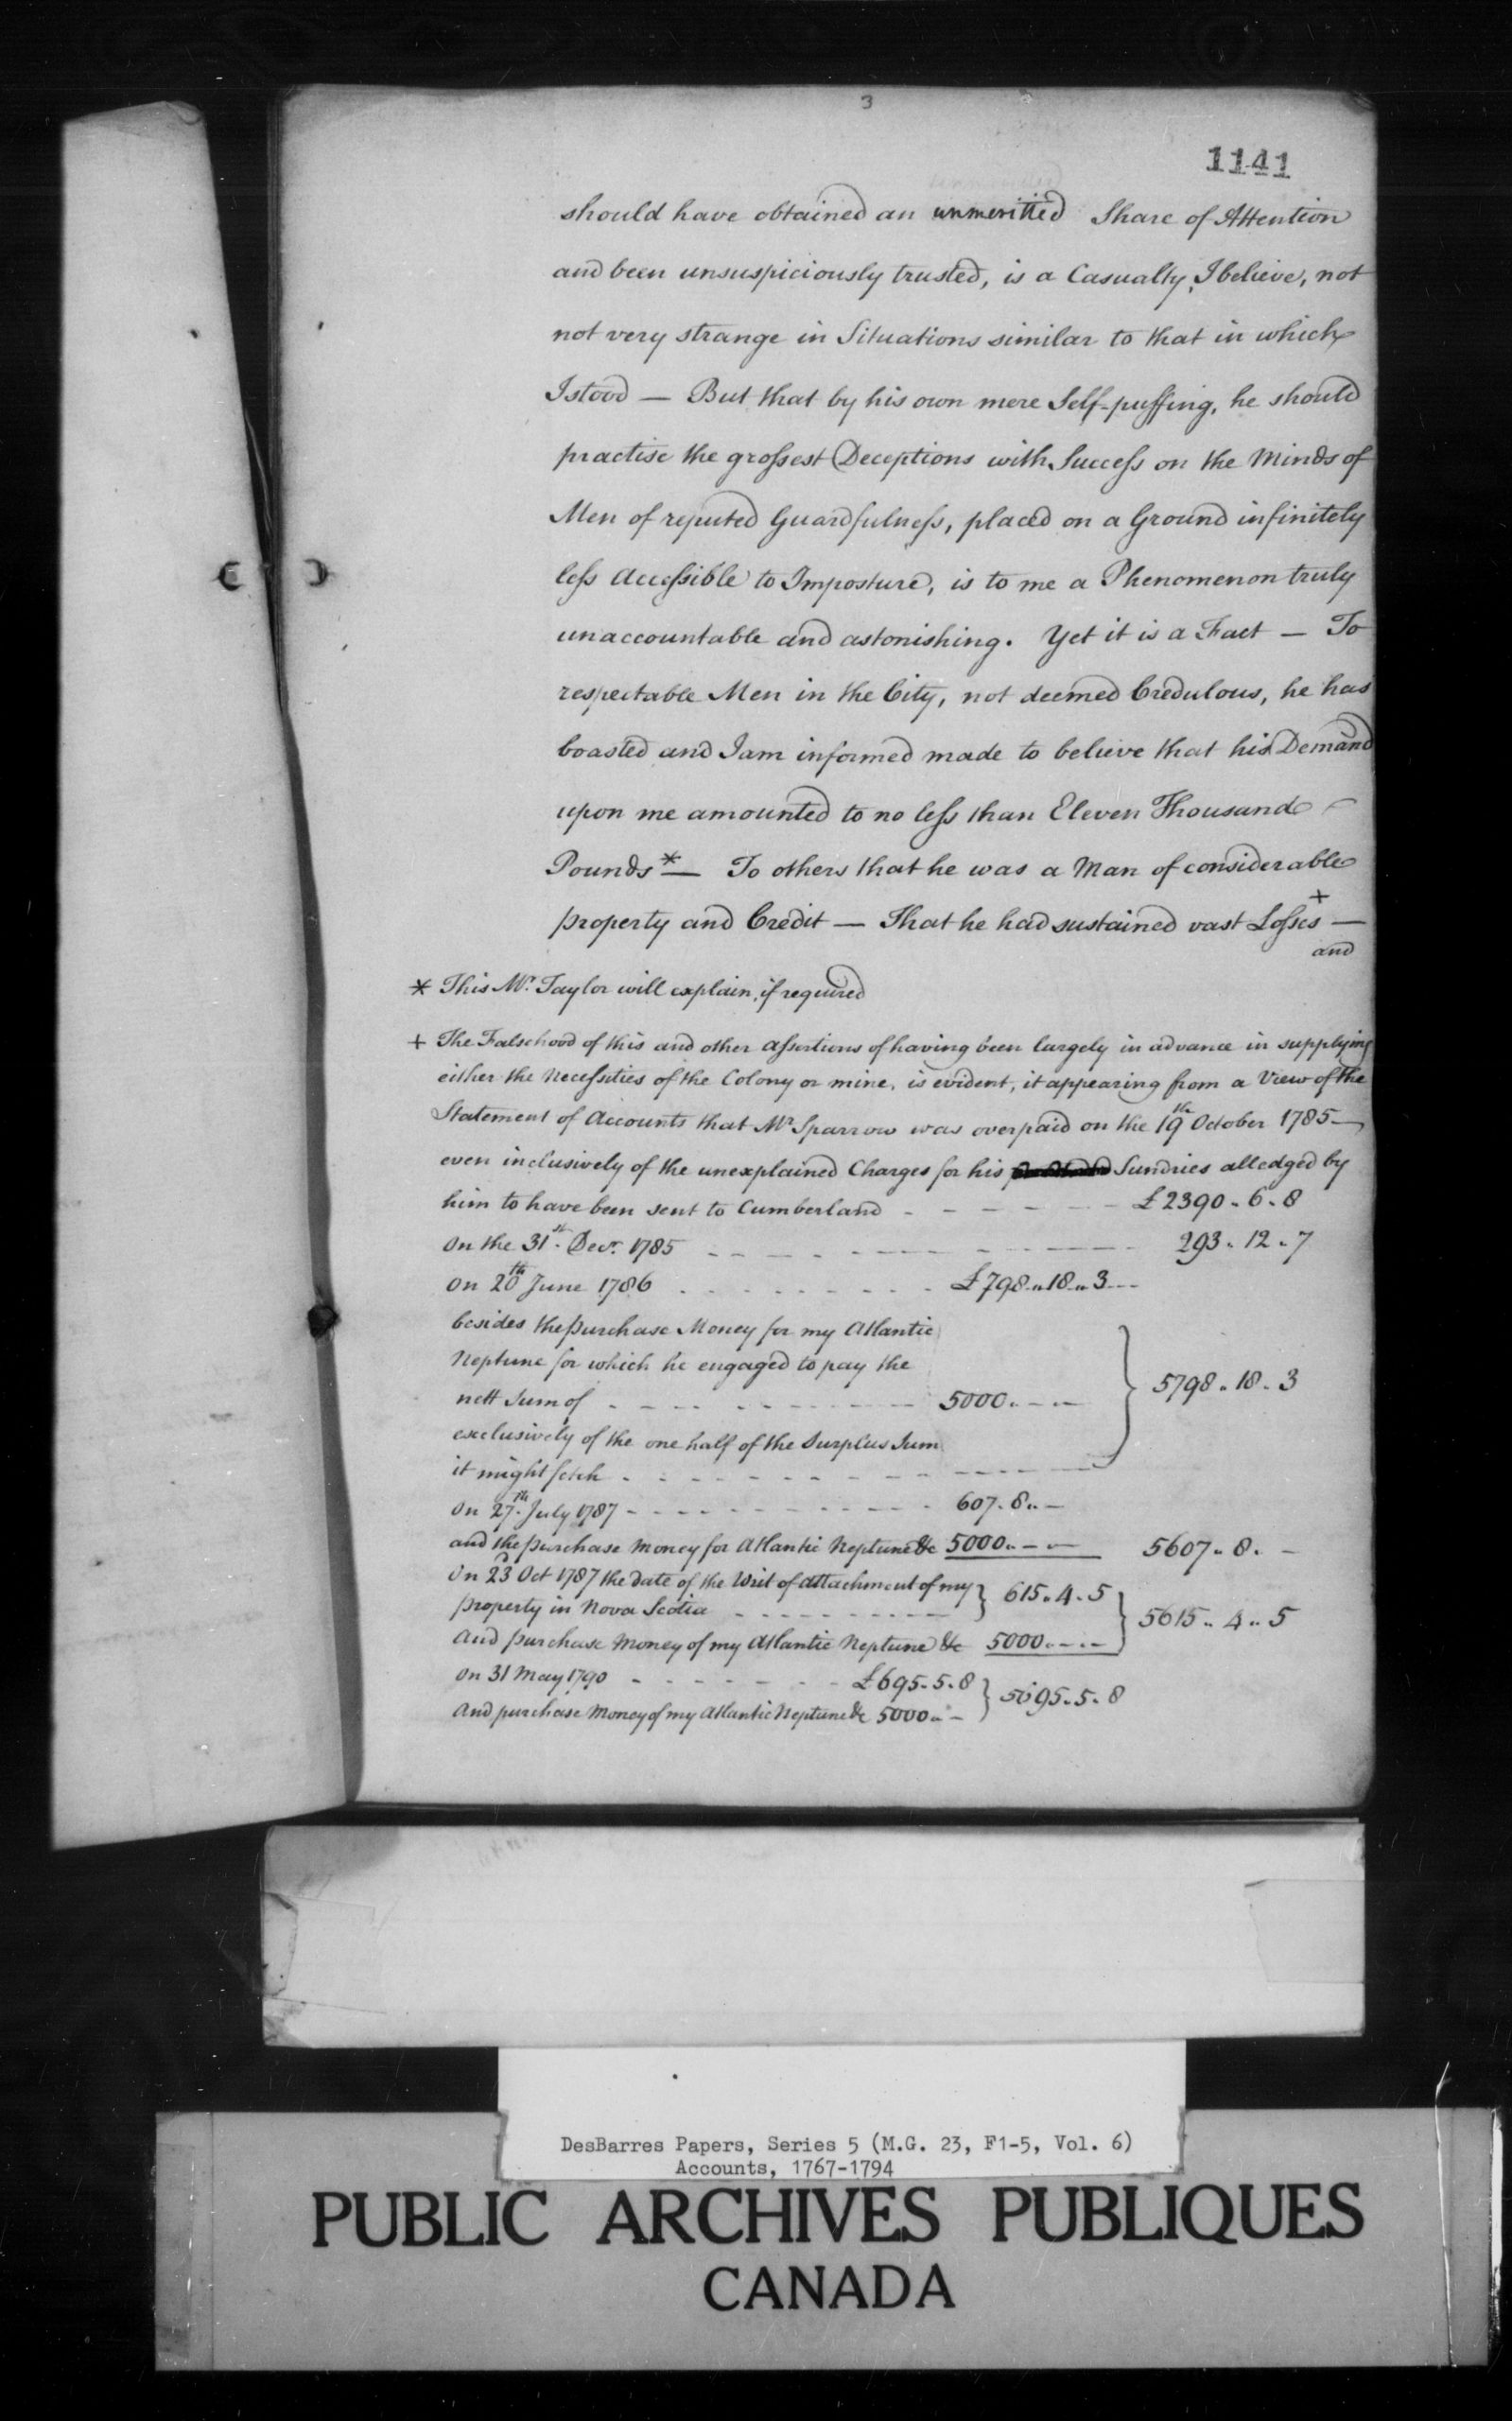 3
1141
should have obtained an unmeritted Share of Attention
and been unsuspiciously trusted, is a Casualty, I believe, not
not very strange in Situations similar to that in which
I stood — But that by his own mere Self-puffing, he should
practise the grossest Deceptions with Success on the Minds of
Men of reputed Guardfulness, placed on a Ground infinitely
less Accessible to Imposture, is to me a Phenomenon truly
unaccountable and astonishing. Yet it is a Fact — To
respectable Men in the City, not deemed Credulous, he has
boasted and I am informed made to believe that his Demand
upon me amounted to no less than Eleven Thousand
Pounds * — To others that he was a Man of considerable
property and Credit — That he had sustained vast Losses + —
and
* This Mr. Taylor will explain, if required
+ The Falsehood of this and other assertions of having been largely in advance in supplying
either the Necessities of the Colony or mine, is evident, it appearing from a View of the
Statement of Accounts that Mr Sparrow was overpaid on the 19th October 1785 —
even inclusively of the unexplained Charges for his Sundries alledged by
him to have been sent to Cumberland - - - - - - £2390. 6. 8
On the 31st. Decr. 1785 - - - - - - 293. 12. 7
On 20th June 1786 - - - - - - £798. 18. 3
besides the purchase Money for my Atlantic
Neptune for which he engaged to pay the
nett Sum of - - - - - - 5000. - - } 5798. 18. 3
exclusively of the one half of the Surplus Sum
it might fetch - - - - - -
On 27th. July 1787 - - - - - - 607. 8. -
and the purchase money for Atlantic Neptune &c 5000. - - 5607. 8. -
On 23d Oct 1787 the date of the Writ of Attachment of my
property in Nova Scotia - - - - - - } 615. 4. 5
And purchase Money of my Atlantic Neptune &c 5000. - - } 5615. 4. 5
On 31 May 1790 - - - - - - £695. 5. 8
And purchase Money of my Atlantic Neptune &c 5000. - } 5695. 5. 8
DesBarres Papers, Series 5 (M.G. 23, F1-5, Vol. 6)
Accounts, 1767-1794
PUBLIC ARCHIVES PUBLIQUES
CANADA